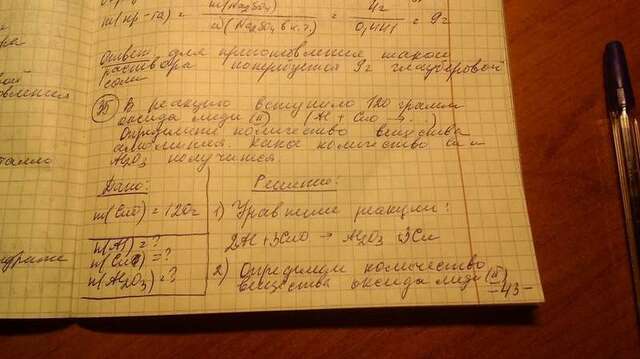 m(Na₂SO₄) 4г
m(пр-ра) = ——— = ——— = 9г
w(Na₂SO₄ в к.г.) 0,441
Ответ: для приготовления такого
раствора потребуется 9г глауберовой
соли
В реакцию вступило 120 грамм
оксида меди (II) (Al + CuO → ...)
Определите количество вещества
алюминия. Какое количество Cu и
Al₂O₃ получится.
Дано:
m(CuO) = 120г
n(Al) = ?
n(Cu) = ?
n(Al₂O₃) = ?
Решение:
1) Уравнение реакции:
2Al + 3CuO → Al₂O₃ + 3Cu
2) Определим количество
вещества оксида меди (II)
=43=